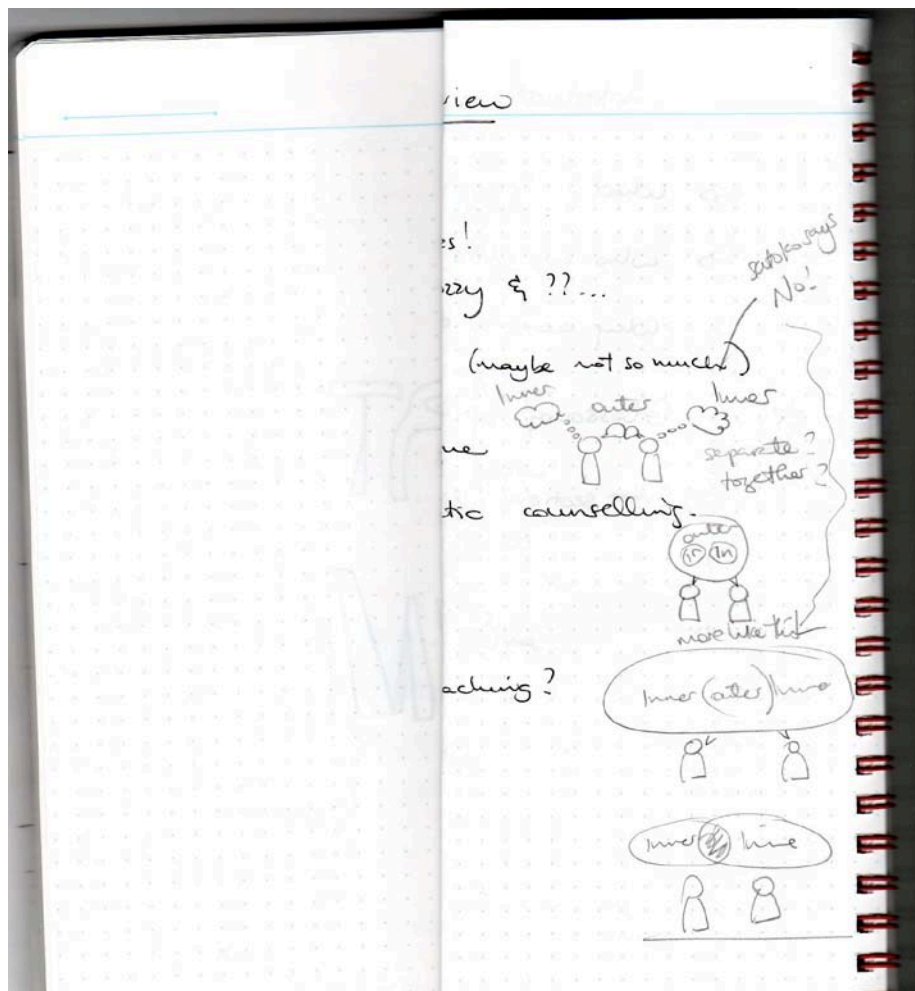 view
es!
zzy & ??...
satoko says
No!
(maybe not so much)
Inner outer Inner
ue
separate?
together?
tic counselling.
outer
in In
more like this
aching?
Inner (outer) Inner
Inner Inne